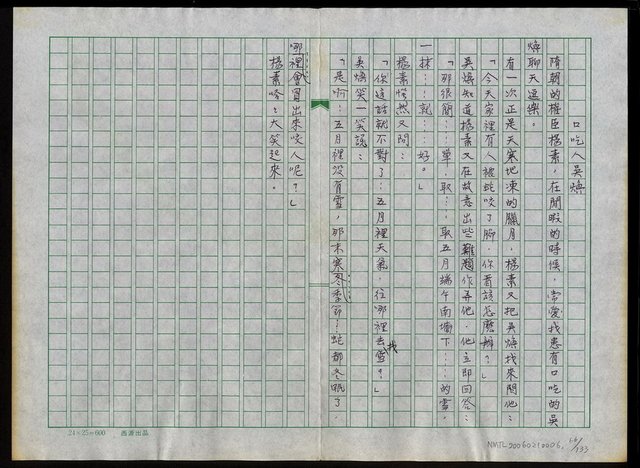 口吃人吳煥
隋朝的權臣楊素，在閒暇的時候，常愛找患有口吃的吳
煥聊天逗樂。
有一次正是天寒地凍的臘月，楊素又把吳煥找來問他：
「今天家裡有人被蛇咬了腳，你看該怎麼辦？」
吳煥知道楊素又在故意出些難題作弄他，他立即回答：
「那很簡……單，取……取五月端午南墻下……的雪，
一抹……就……好。」
楊素愕然又問：
「你這話就不對了！五月裡天氣，往哪裡去找雪？」
吳煥笑一笑說：
「是啊！五月裡沒有雪，那末寒冬季節……蛇都冬眠了，
哪裡會冒出來咬人呢？」
楊素哈哈大笑起來。
24×25=600 西源出品
NMTL20060210006
66/133